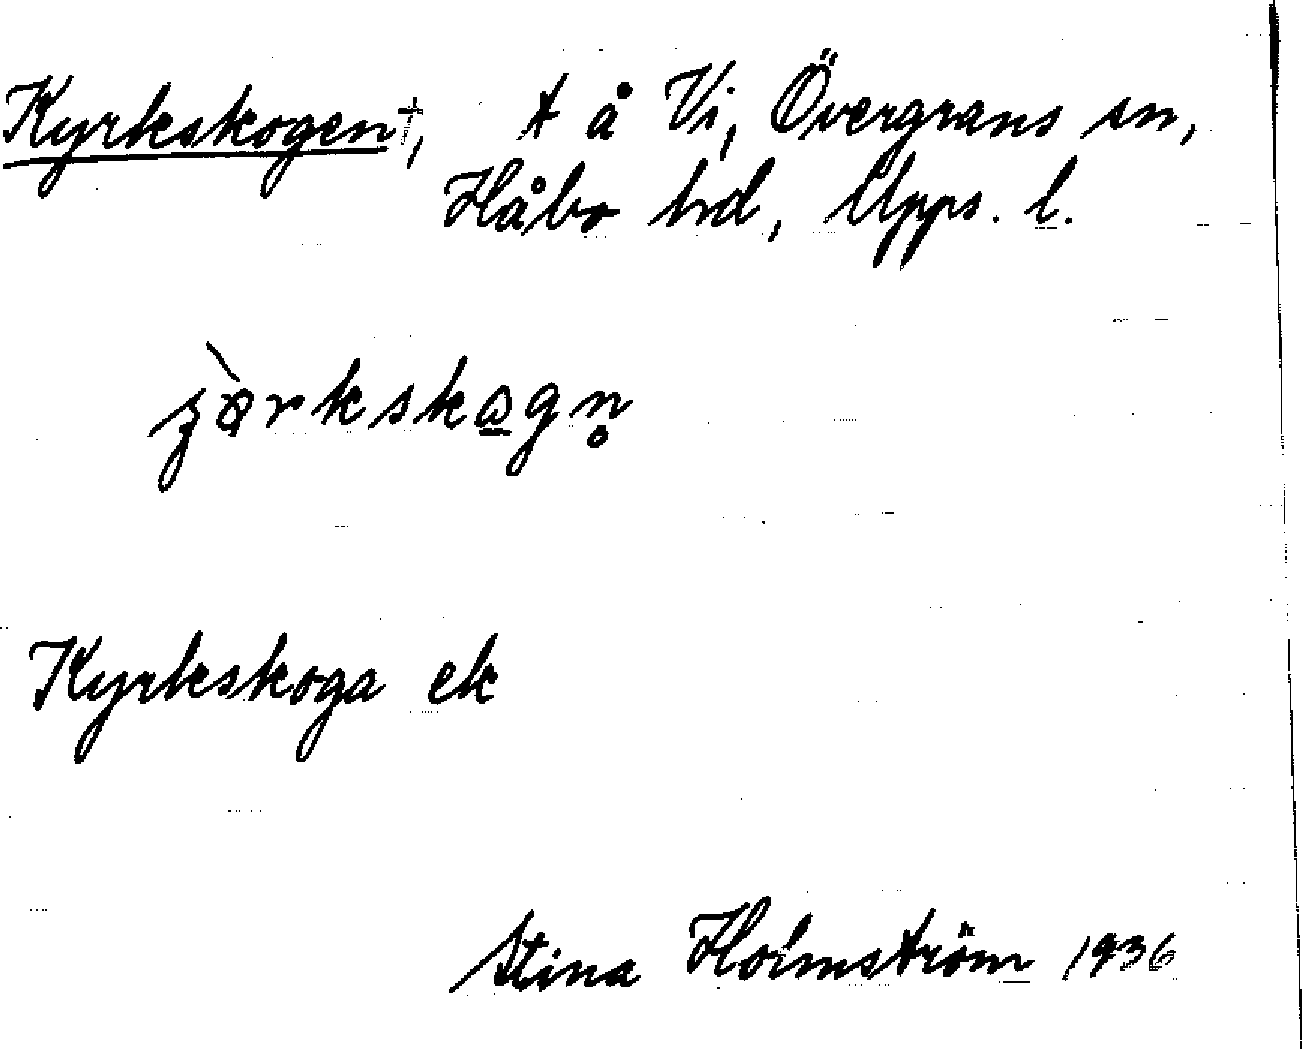 Kyrkskogen†, t å Vi, Övergrans sn,
Håbo hd, Upps. l.
Kyrkskoga ek
Stina Holmström 1936